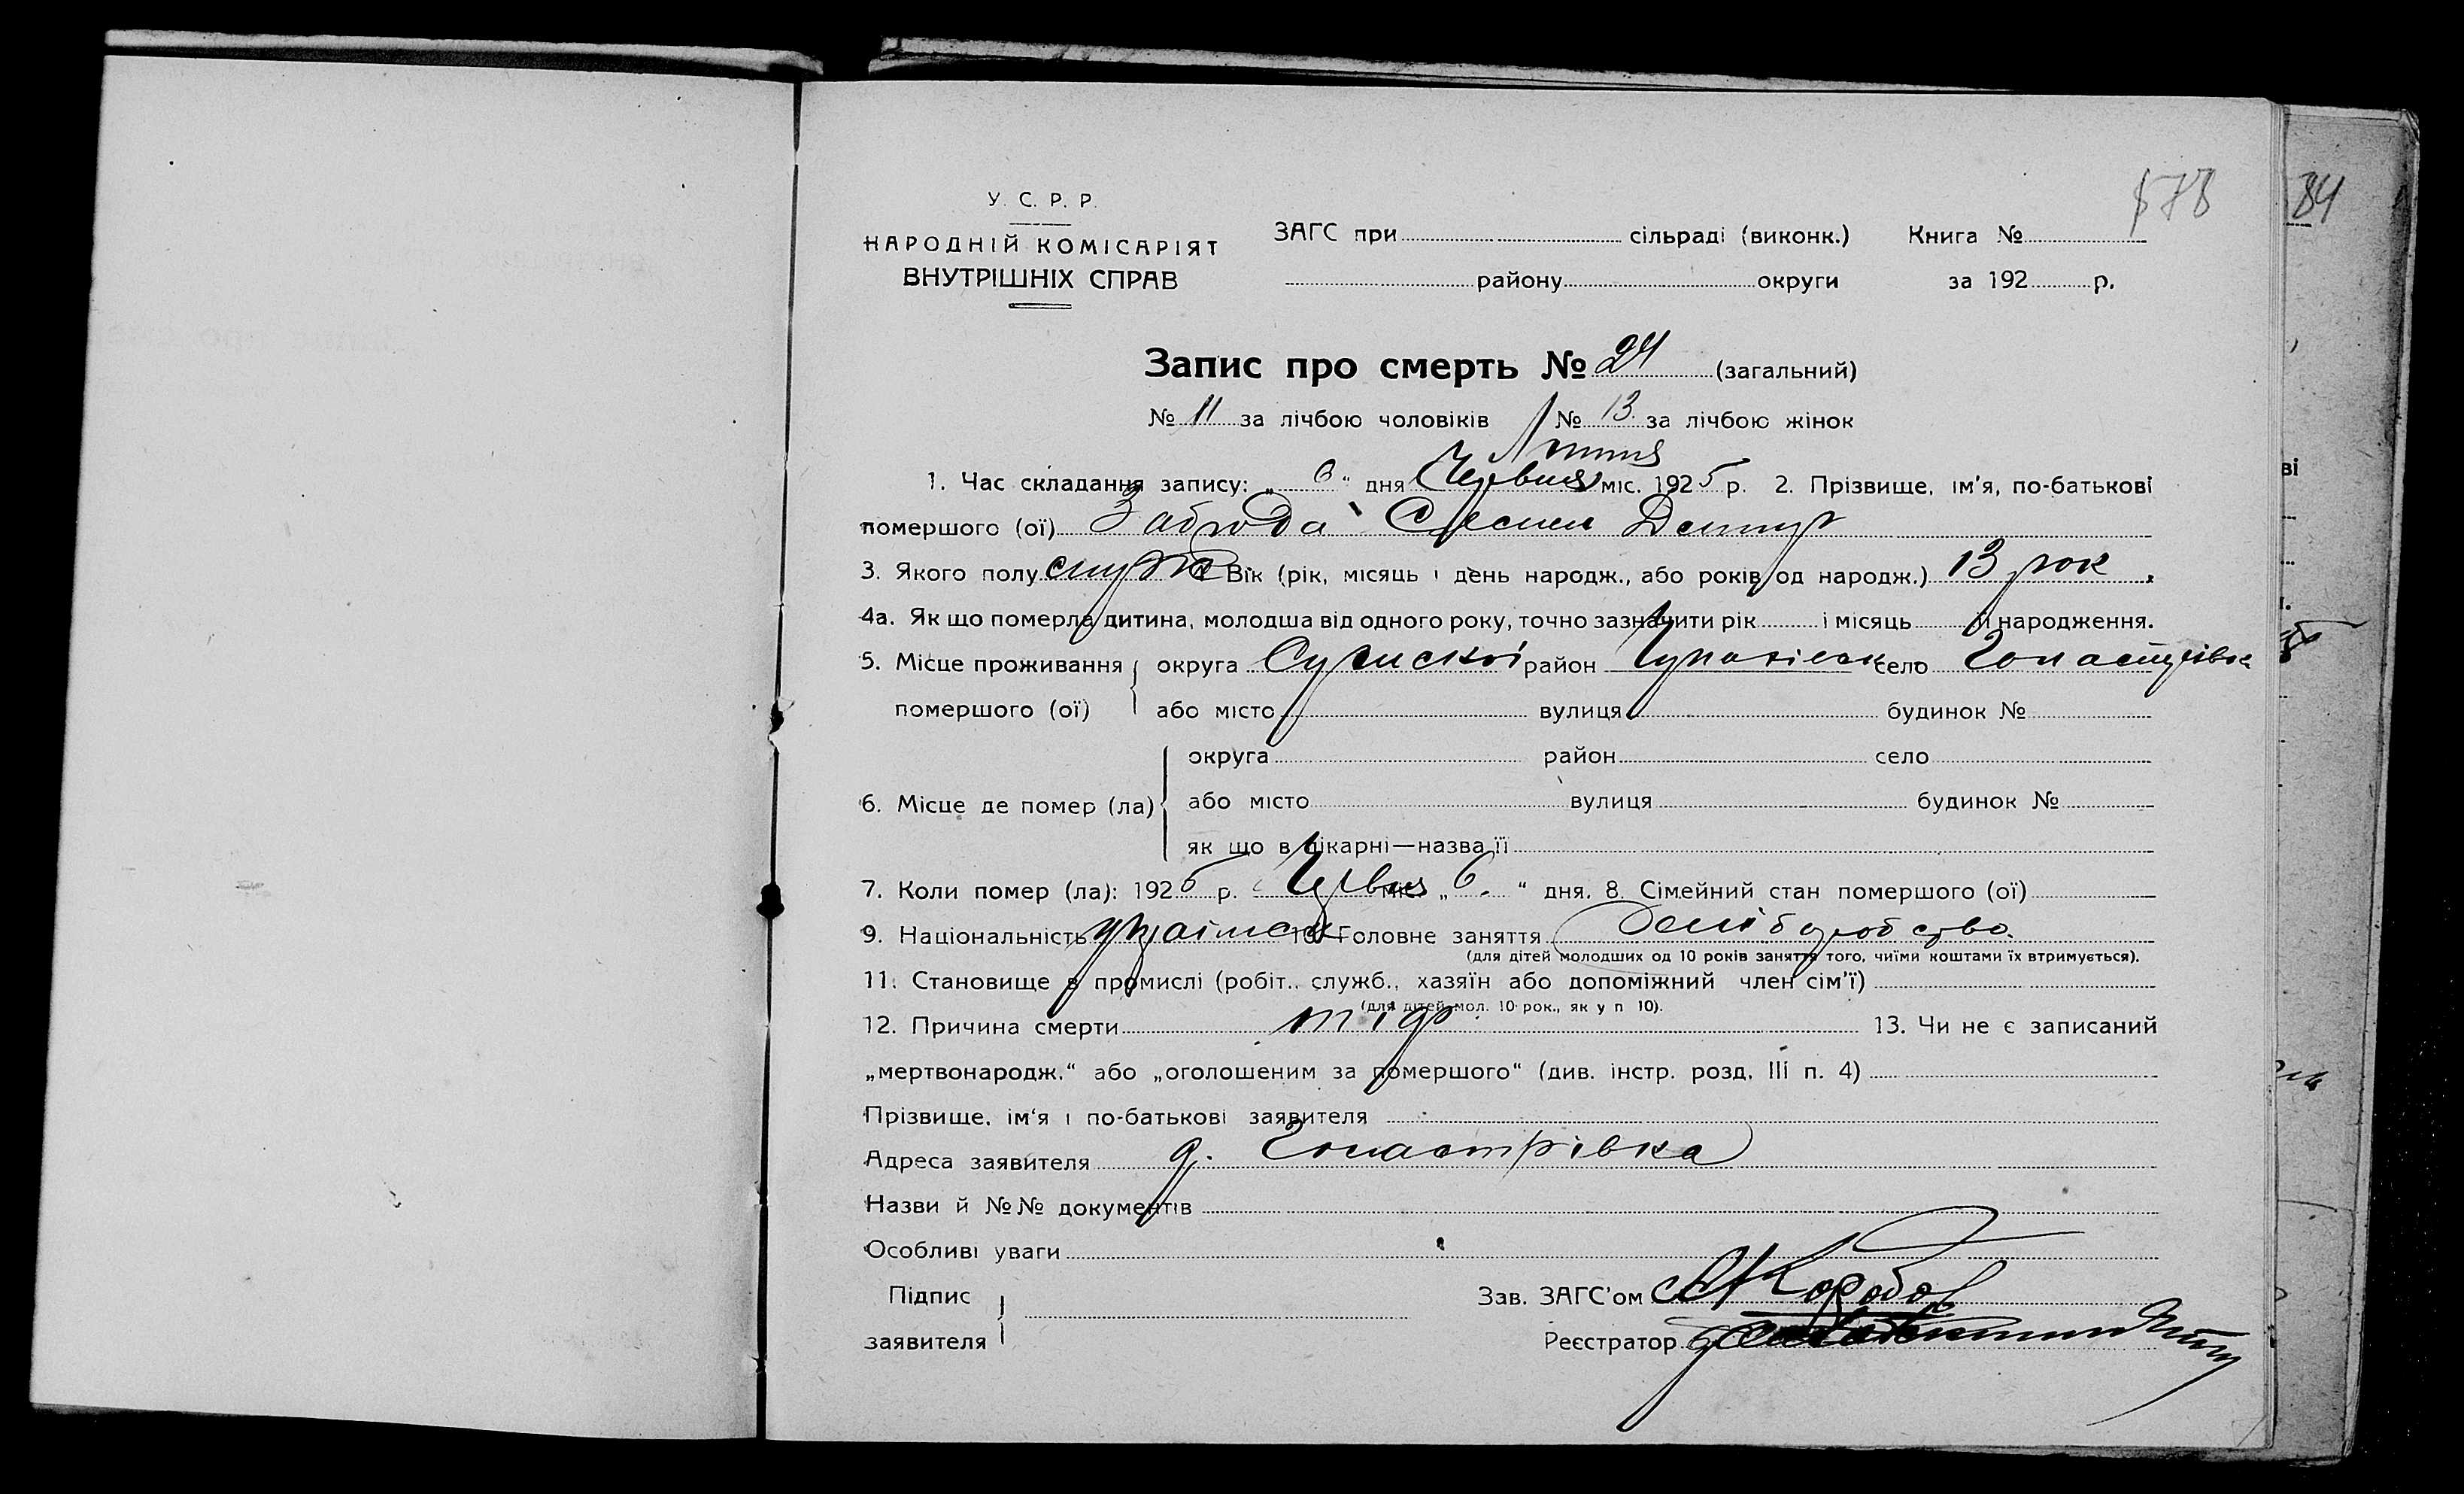 578
84
У. С. Р. Р.
НАРОДНІЙ КОМІСАРІЯТ
ВНУТРІШНІХ СПРАВ
ЗАГС при сільраді (виконк.) Книга №
району округи за 192 р.
Запис про смерть № 24 (загальний)
№ 11 за лічбою чоловіків № 13 за лічбою жінок
Липня
1. Час складання запису: „ 6 “ дня Червня міс. 1925 р. 2. Прізвище, ім'я, по-батькові
помершого (ої) Заброда
3. Якого полу 4 Вік (рік, місяць і день народж., або років од народж.) 13 рок.
4а. Як що померла дитина, молодша від одного року, точно зазначити рік і місяць її народження.
5. Місце проживання округа Сумскої район село
помершого (ої) або місто вулиця будинок №
округа район село
6. Місце де помер (ла) або місто вулиця будинок №
як що в лікарні—назва її
7. Коли помер (ла): 1925 р. Червня міс „ 6. “ дня. 8. Сімейний стан помершого (ої)
9. Національність 10. Головне заняття
(для дітей молодших од 10 років заняття того, чиїми коштами їх втримується).
11. Становище в промислі (робіт., служб., хазяїн або допоміжний член сім'ї)
(для дітей мол. 10 рок., як у п 10).
12. Причина смерти тіф 13. Чи не є записаний
„мертвонародж.“ або „оголошеним за помершого“ (див. інстр. розд. III п. 4)
Прізвище, ім'я і по-батькові заявителя
Адреса заявителя
Назви й №№ документів
Особливі уваги
Підпис Зав. ЗАГС'ом
заявителя Реєстратор